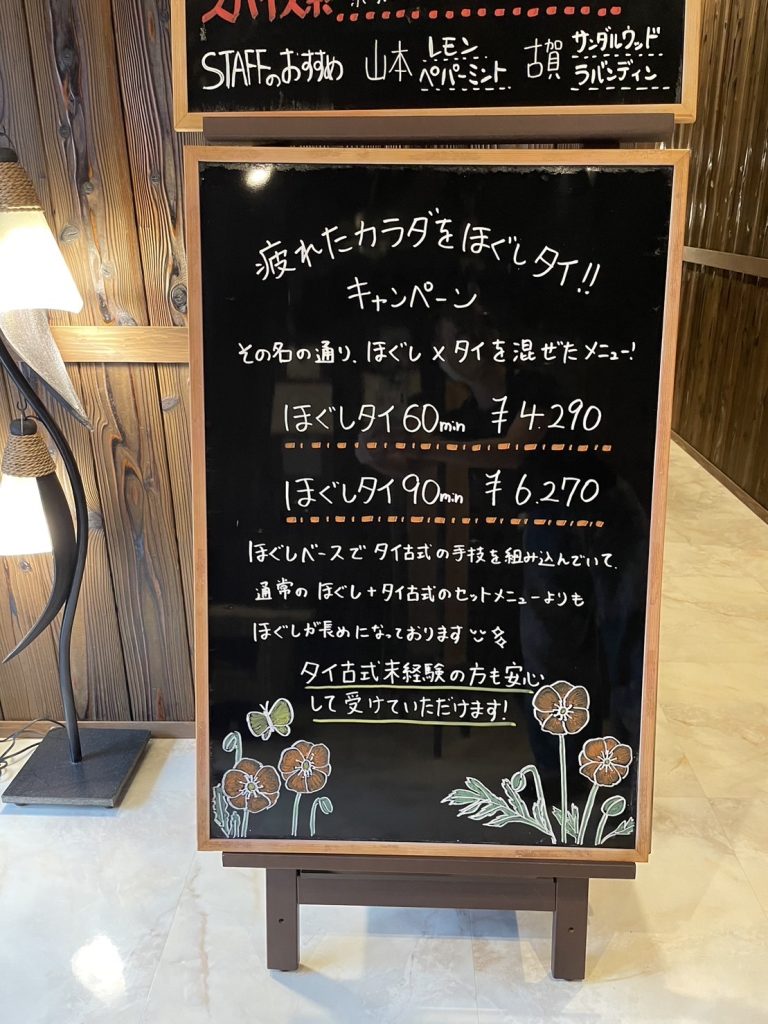 STAFFのおすすめ 山本 レモン ペパーミント 古賀 サンダルウッド ラバンディン
疲れたカラダをほぐしタイ!!
キャンペーン
その名の通り、ほぐし×タイを混ぜたメニュー!
ほぐしタイ60min ¥4.290
ほぐしタイ90min ¥6.270
ほぐしベースでタイ古式の手技を組み込んでいて、
通常のほぐし+タイ古式のセットメニューよりも
ほぐしが長めになっております
タイ古式未経験の方も安心
して受けていただけます!